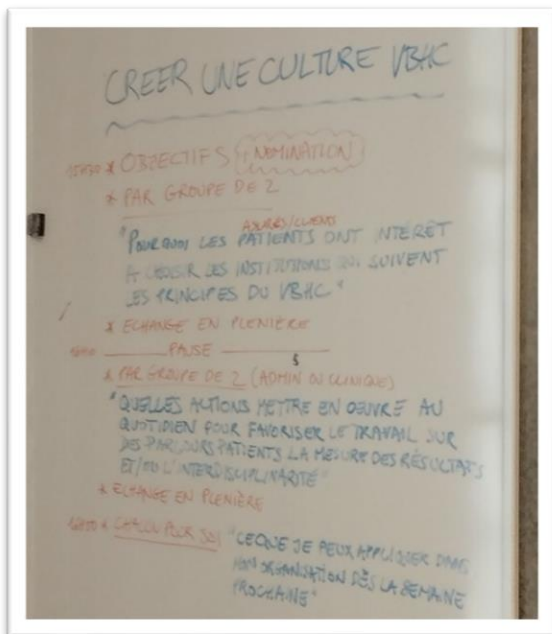 CREER UNE CULTURE VBHC
* OBJECTIFS (+ NOMINATION)
* PAR GROUPE DE 2
ASSURÉS/CLIENTS
"POURQUOI LES PATIENTS ONT INTÉRÊT
A CHOISIR LES INSTITUTIONS QUI SUIVENT
LES PRINCIPES DU VBHC"
* ECHANGE EN PLENIÈRE
PAUSE
* PAR GROUPE DE 2 (ADMIN OU CLINIQUE)
"QUELLES ACTIONS METTRE EN OEUVRE AU
QUOTIDIEN POUR FAVORISER LE TRAVAIL SUR
DES PARCOURS PATIENTS LA MESURE DES RÉSULTATS
ET/OU L'INTERDISCIPLINARITÉ"
* ECHANGE EN PLENIÈRE
* CHACUN POUR SOI "CE QUE JE PEUX APPLIQUER DANS
MON ORGANISATION DÈS LA SEMAINE
PROCHAINE"